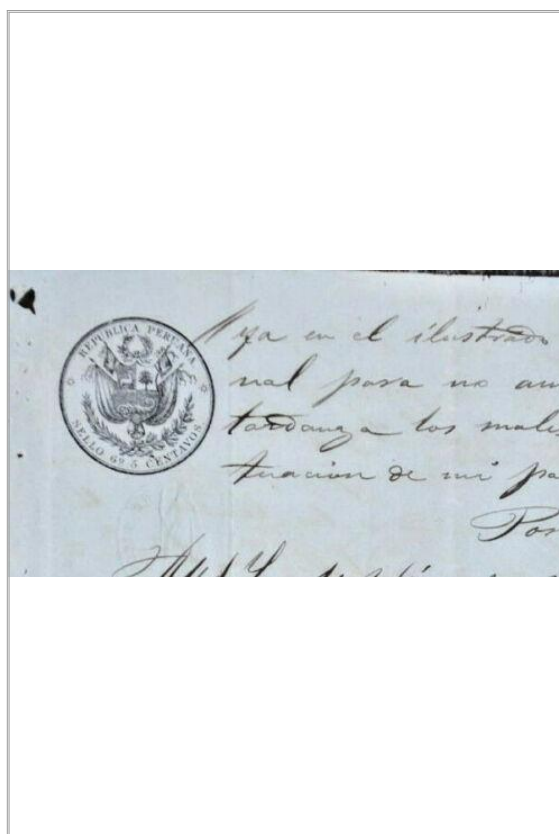 REPUBLICA PERUANA
SELLO 6º 5 CENTAVOS
ya en el ilustrado
nal para no au
tardanza los male
tuacion de mi pa
Por